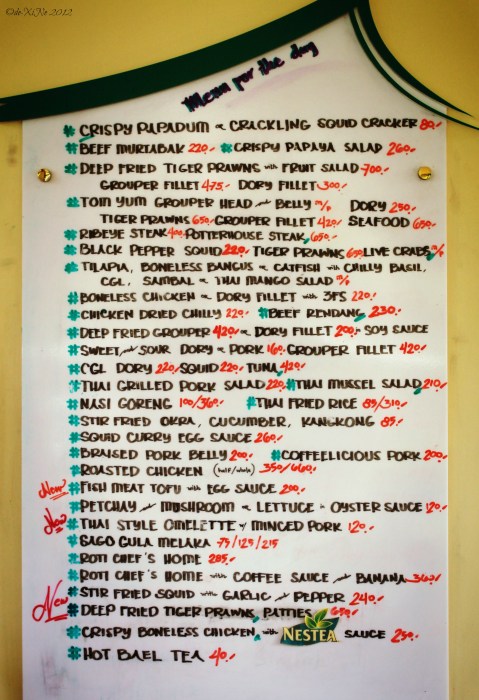 ©de XiNe 2012
Menu for the day
# CRISPY PAPADUM or CRACKLING SQUID CRACKER 80.-
# BEEF MURTABAK 220.- # CRISPY PAPAYA SALAD 260.-
# DEEP FRIED TIGER PRAWNS with FRUIT SALAD 700.-
GROUPER FILLET 475.- DORY FILLET 300.-
# TOM YUM GROUPER HEAD and BELLY DORY 250.-
TIGER PRAWNS 650.- GROUPER FILLET 420.- SEAFOOD 650.-
# RIBEYE STEAK 400.- POTTERHOUSE STEAK, 650.-
# BLACK PEPPER SQUID 220.- TIGER PRAWNS 650.- LIVE CRABS,
# TILAPIA, BONELESS BANGUS or CATFISH with CHILLY BASIL,
CGL, SAMBAL or THAI MANGO SALAD
# BONELESS CHICKEN or DORY FILLET with 3FS 220.-
# CHICKEN DRIED CHILLY 220.- # BEEF RENDANG 230.-
# DEEP FRIED GROUPER 420.- or DORY FILLET 200.- SOY SAUCE
# SWEET and SOUR DORY or PORK 160.- GROUPER FILLET 420.-
# CGL DORY 220.- SQUID 220.- TUNA 420.-
# THAI GRILLED PORK SALAD 220.- # THAI MUSSEL SALAD 210.-
# NASI GORENG 100/360.- # THAI FRIED RICE 85/310.-
# STIR FRIED OKRA, CUCUMBER, KANGKONG 85.-
# SQUID CURRY EGG SAUCE 260.-
# BRAISED PORK BELLY 200.- # COFFEELICIOUS PORK 200.-
# ROASTED CHICKEN (half/whole) 350/660.-
New # FISH MEAT TOFU with EGG SAUCE 200.-
# PETCHAY and MUSHROOM or LETTUCE in OYSTER SAUCE 120.-
New # THAI STYLE OMELETTE w/ MINCED PORK 120.-
# SAGO GULA MELAKA 75/125/215
# ROTI CHEF'S HOME 285.-
# ROTI CHEF'S HOME with COFFEE SAUCE and BANANA 360.-
# STIR FRIED SQUID with GARLIC and PEPPER 240.-
New # DEEP FRIED TIGER PRAWNS PATTIES 650.-
# CRISPY BONELESS CHICKEN with NESTEA SAUCE 250.-
# HOT BAEL TEA 40.-